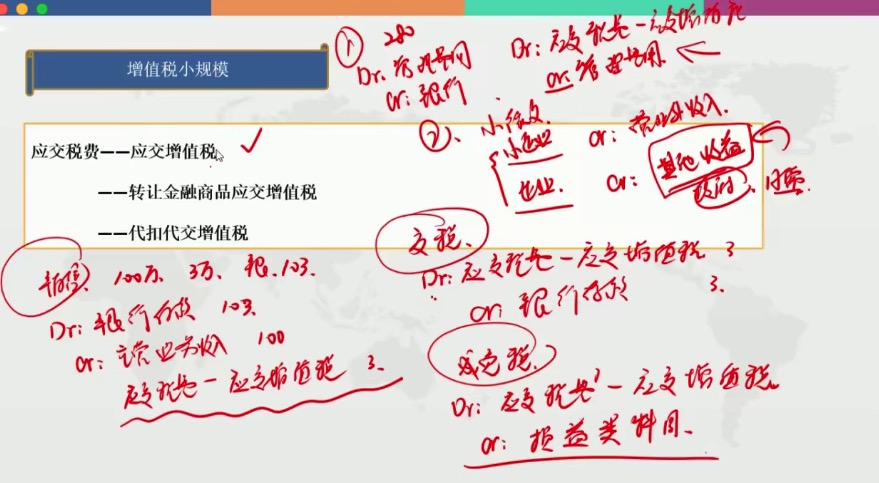 增值税小规模
应交税费——应交增值税
——转让金融商品应交增值税
——代扣代交增值税
① 280
Dr: 管理费用
Cr: 银行
Dr: 应交税费—应交增值税
Cr: 管理费用
②、小微
小企业
企业.
Cr: 营业外收入.
Cr: 其他收益
政府、日常.
销售 100万、3万、银.103.
Dr: 银行存款 103
Cr: 主营业务收入 100
应交税费—应交增值税 3.
交税.
Dr: 应交税费—应交增值税 3
Cr: 银行存款 3.
减免税.
Dr: 应交税费—应交增值税
Cr: 损益类科目.